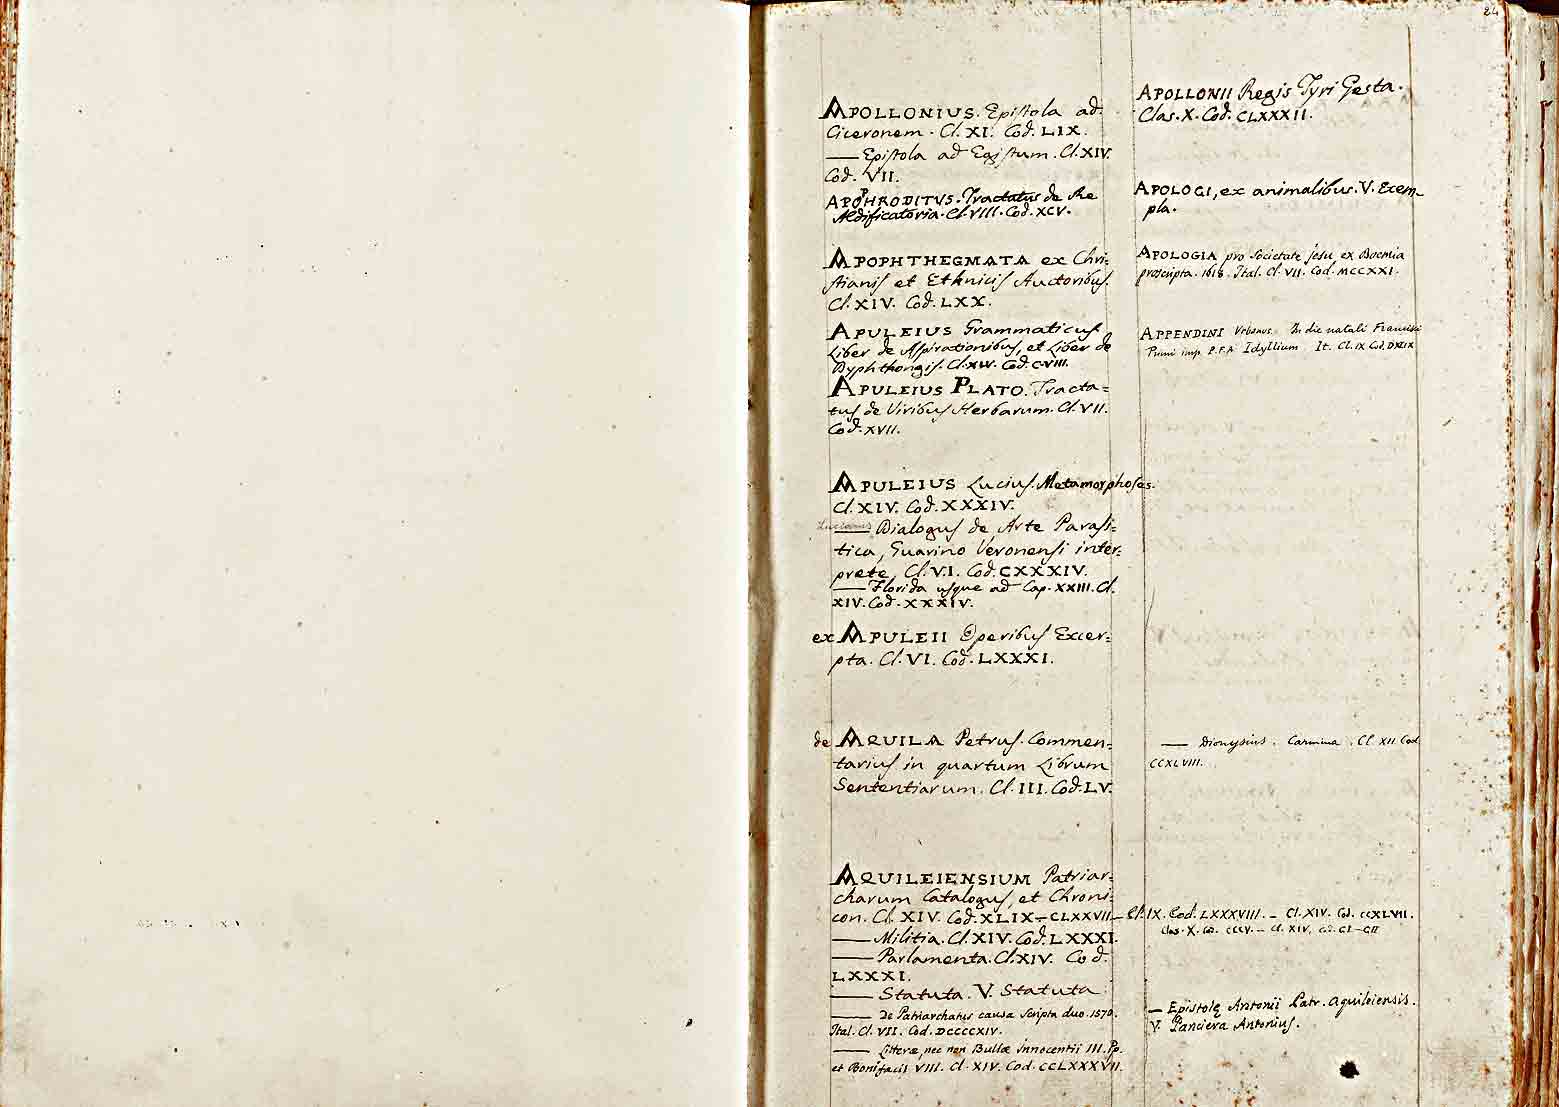 24
APOLLONIUS. Epistola ad
Ciceronem. Cl. XI. Cod. LIX.
— Epistola ad Egistum. Cl. XIV.
Cod. VII.
APOPHRODITVS. Tractatus de Re
Aedificatoria. Cl. VIII. Cod. XCV.
APOPHTHEGMATA ex Chri=
stianis et Ethnicis Auctoribus.
Cl. XIV. Cod. LXX.
APULEIUS Grammaticus
Liber de Aspirationibus, et Liber de
Dyphthongis. Cl. XIV. Cod. CVIII.
APULEIUS PLATO. Tracta=
tus de Viribus Herbarum. Cl. VII.
Cod. XVII.
APULEIUS Lucius. Metamorphoses.
Cl. XIV. Cod. XXXIV.
Lucianus — Dialogus de Arte Parasi=
tica, Guarino Veronensi inter=
prete, Cl. VI. Cod. CXXXIV.
— Florida usque ad Cap. XXIII. Cl.
XIV. Cod. XXXIV.
ex APULEII Operibus Excer=
pta. Cl. VI. Cod. LXXXI.
de AQUILA Petrus. Commen=
tarius in quartum Librum
Sententiarum. Cl. III. Cod. LV.
AQUILEIENSIUM Patriar=
charum Catalogus, et Chroni=
con. Cl. XIV. Cod. XLIX — CLXXVII — Cl. IX. Cod. LXXXVIII. — Cl. XIV. Cod. CCXLVII.
Clas. X. Co. CCCV. — Cl. XIV. Co. CI—CII
— Militia. Cl. XIV. Cod. LXXXI.
— Parlamenta. Cl. XIV. Cod.
LXXXI.
— Statuta. V. Statuta
— de Patriarchatus causa scripta duo. 1570.
Ital. Cl. VII. Cod. DCCCCXIV.
— Litteræ, nec non Bullæ Innocentii III. Pp.
et Bonifacii VIII. Cl. XIV. Cod. CCLXXXVII.
APOLLONII Regis Tyri Gesta.
Clas. X. Cod. CLXXXII.
APOLOGI, ex animalibus. V. Exem-
pla.
APOLOGIA pro Societate Jesu ex Boemia
proscripta. 1618. Ital. Cl. VII. Cod. MCCXXI.
APPENDINI Urbanus. In die natali Francisci
Primi imp. P.F.A. Idyllium It. Cl. IX Cod.
— Dionysius. Carmina. Cl. XII. Cod
CCXLVIII.
— Epistolę Antonii Patr. Aquileiensis.
V. Panciera Antonius.